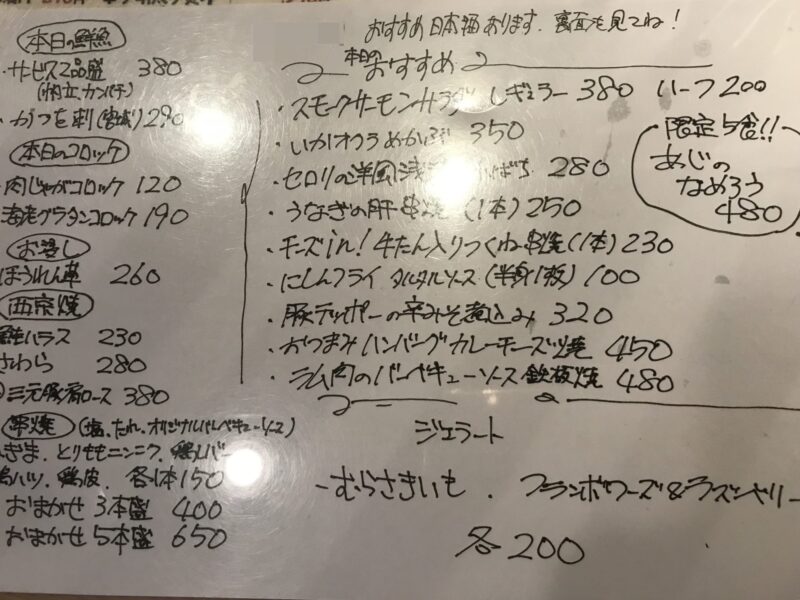 おすすめ日本酒あります。裏面も見てね！
本日の鮮魚
・サービス2品盛 380
(帆立、カンパチ)
・かつを刺(宮城) 290
本日のコロッケ
肉じゃがコロッケ 120
海老グラタンコロッケ 190
お浸し
ほうれん草 260
西京焼
鮭ハラス 230
さわら 280
三元豚肩ロース 380
串焼 (塩、たれ、オリジナルバーベキューソース)
ねぎま、とりももニンニク、鶏レバー
鶏ハツ、鶏皮、各1本150
おまかせ 3本盛 400
おまかせ 5本盛 650
本日のおすすめ
・スモークサーモンサラダ レギュラー 380 ハーフ 200
・いかオクラめかぶ 350
・セロリの洋風浅 280
・うなぎの肝串焼(1本) 250
・チーズin！牛たん入りつくね串焼(1本) 230
・にしんフライ タルタルソース(半身1枚) 100
・豚テッポーの辛みそ煮込み 320
・おつまみハンバーグカレーチーズ焼 450
・ラム肉のバーベキューソース鉄板焼 480
限定5食!!
あじの
なめろう
480
ジェラート
-むらさきいも、フランボワーズ&ラズベリー
各200